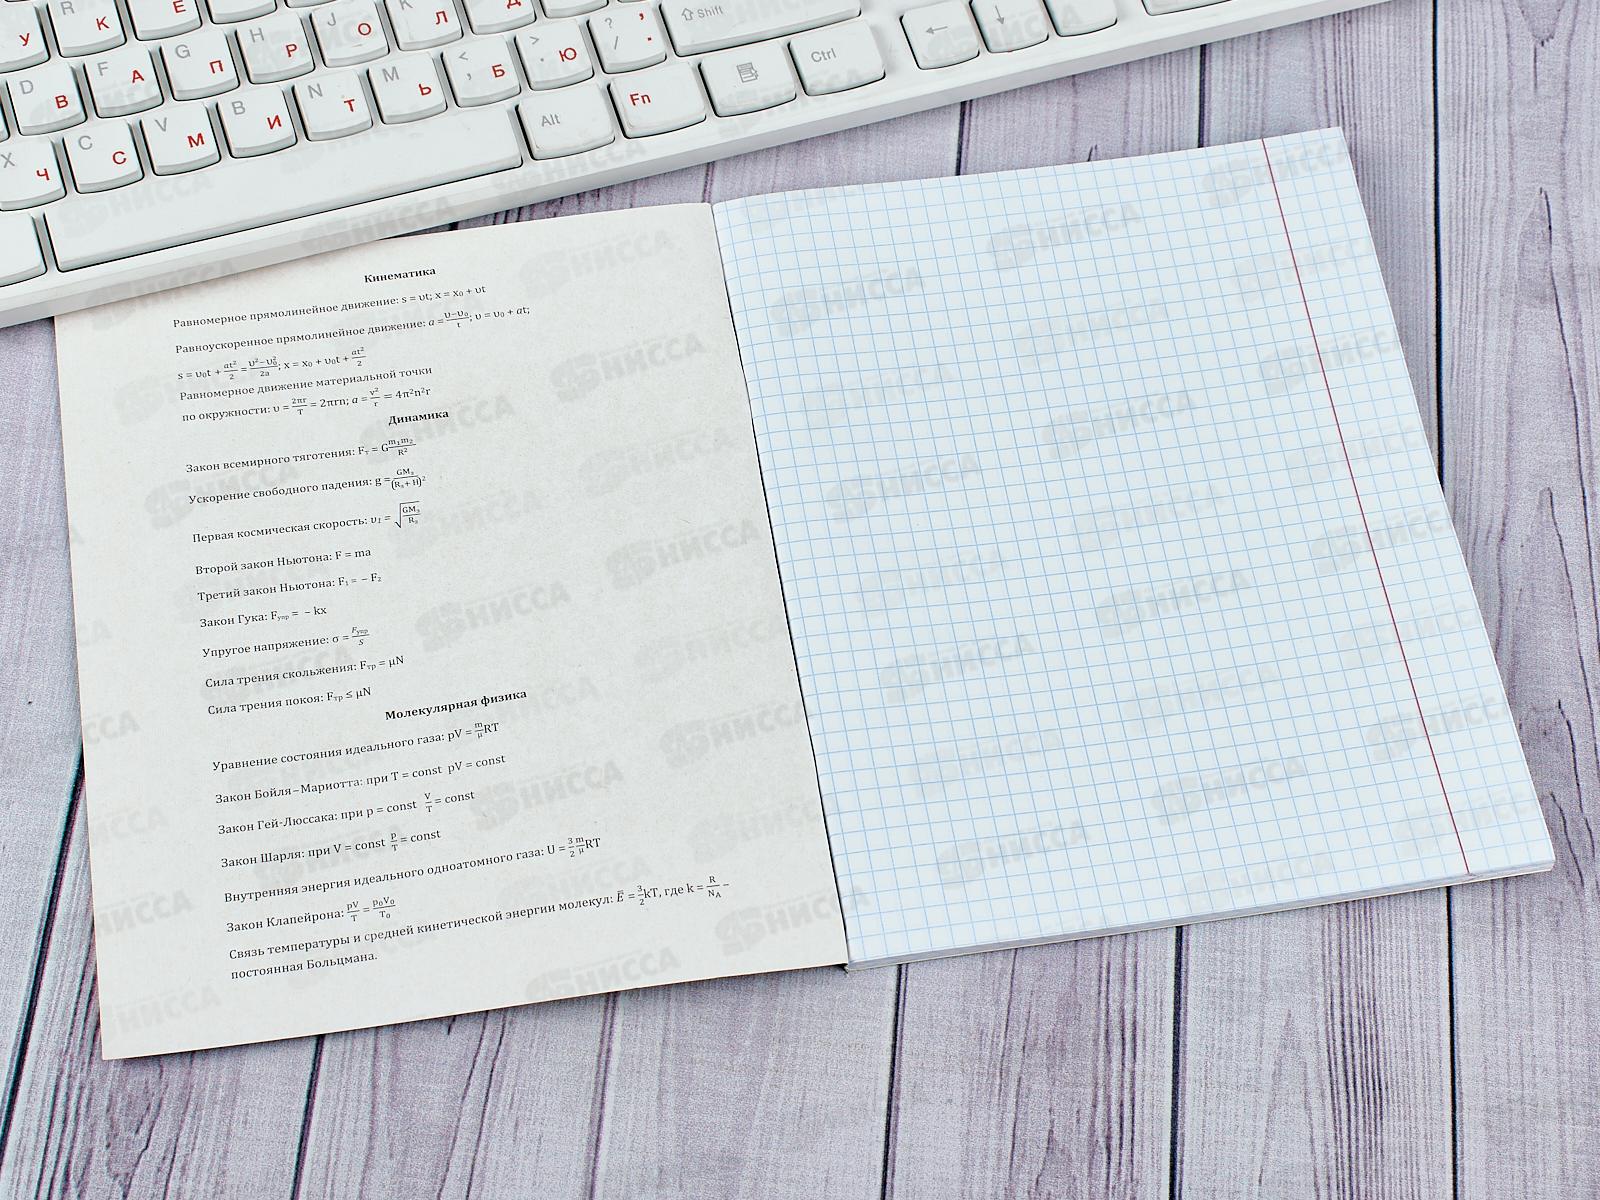 R К E
У К Е J О К Л Д ? / , . ⇧ Shift ← ↓
D В F А G П H Р
X Ч C С V М B И N Т M Ь < , Б > . Ю Alt Fn Ctrl
Кинематика
Равномерное прямолинейное движение: s = υt; x = x₀ + υt
Равноускоренное прямолинейное движение: a = (υ−υ₀)/t; υ = υ₀ + at;
s = υ₀t + at²/2 = (υ²−υ₀²)/2a; x = x₀ + υ₀t + at²/2
Равномерное движение материальной точки
по окружности: υ = 2πr/T = 2πrn; a = v²/r = 4π²n²r
Динамика
Закон всемирного тяготения: Fт = G m₁m₂/R²
Ускорение свободного падения: g = GMз/(Rз + H)²
Первая космическая скорость: υ₁ = √(GMз/Rз)
Второй закон Ньютона: F = ma
Третий закон Ньютона: F₁ = − F₂
Закон Гука: Fупр = − kx
Упругое напряжение: σ = Fупр/S
Сила трения скольжения: Fтр = μN
Сила трения покоя: Fтр ≤ μN
Молекулярная физика
Уравнение состояния идеального газа: pV = m/μ RT
Закон Бойля–Мариотта: при T = const pV = const
Закон Гей-Люссака: при p = const V/T = const
Закон Шарля: при V = const p/T = const
Внутренняя энергия идеального одноатомного газа: U = 3/2 m/μ RT
Закон Клапейрона: pV/T = p₀V₀/T₀
Связь температуры и средней кинетической энергии молекул: E̅ = 3/2 kT, где k = R/Nᴀ –
постоянная Больцмана.
НИССА